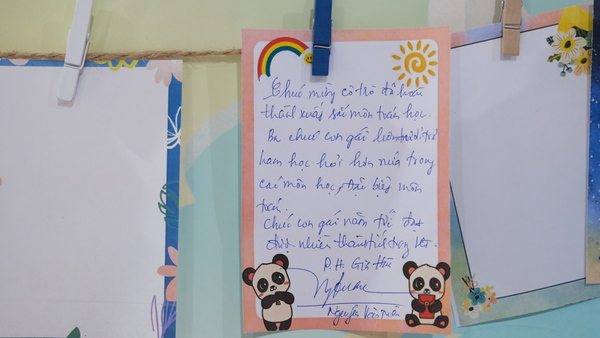 Chúc mừng cô trò đã hoàn
thành xuất sắc môn toán học.
Ba chúc con gái luôn
ham học hỏi hơn nữa trong
các môn học, đặc biệt môn
toán.
Chúc con gái năm tới đạt
được nhiều thành tích
P.H. Gia Hân
Nguyễn Văn